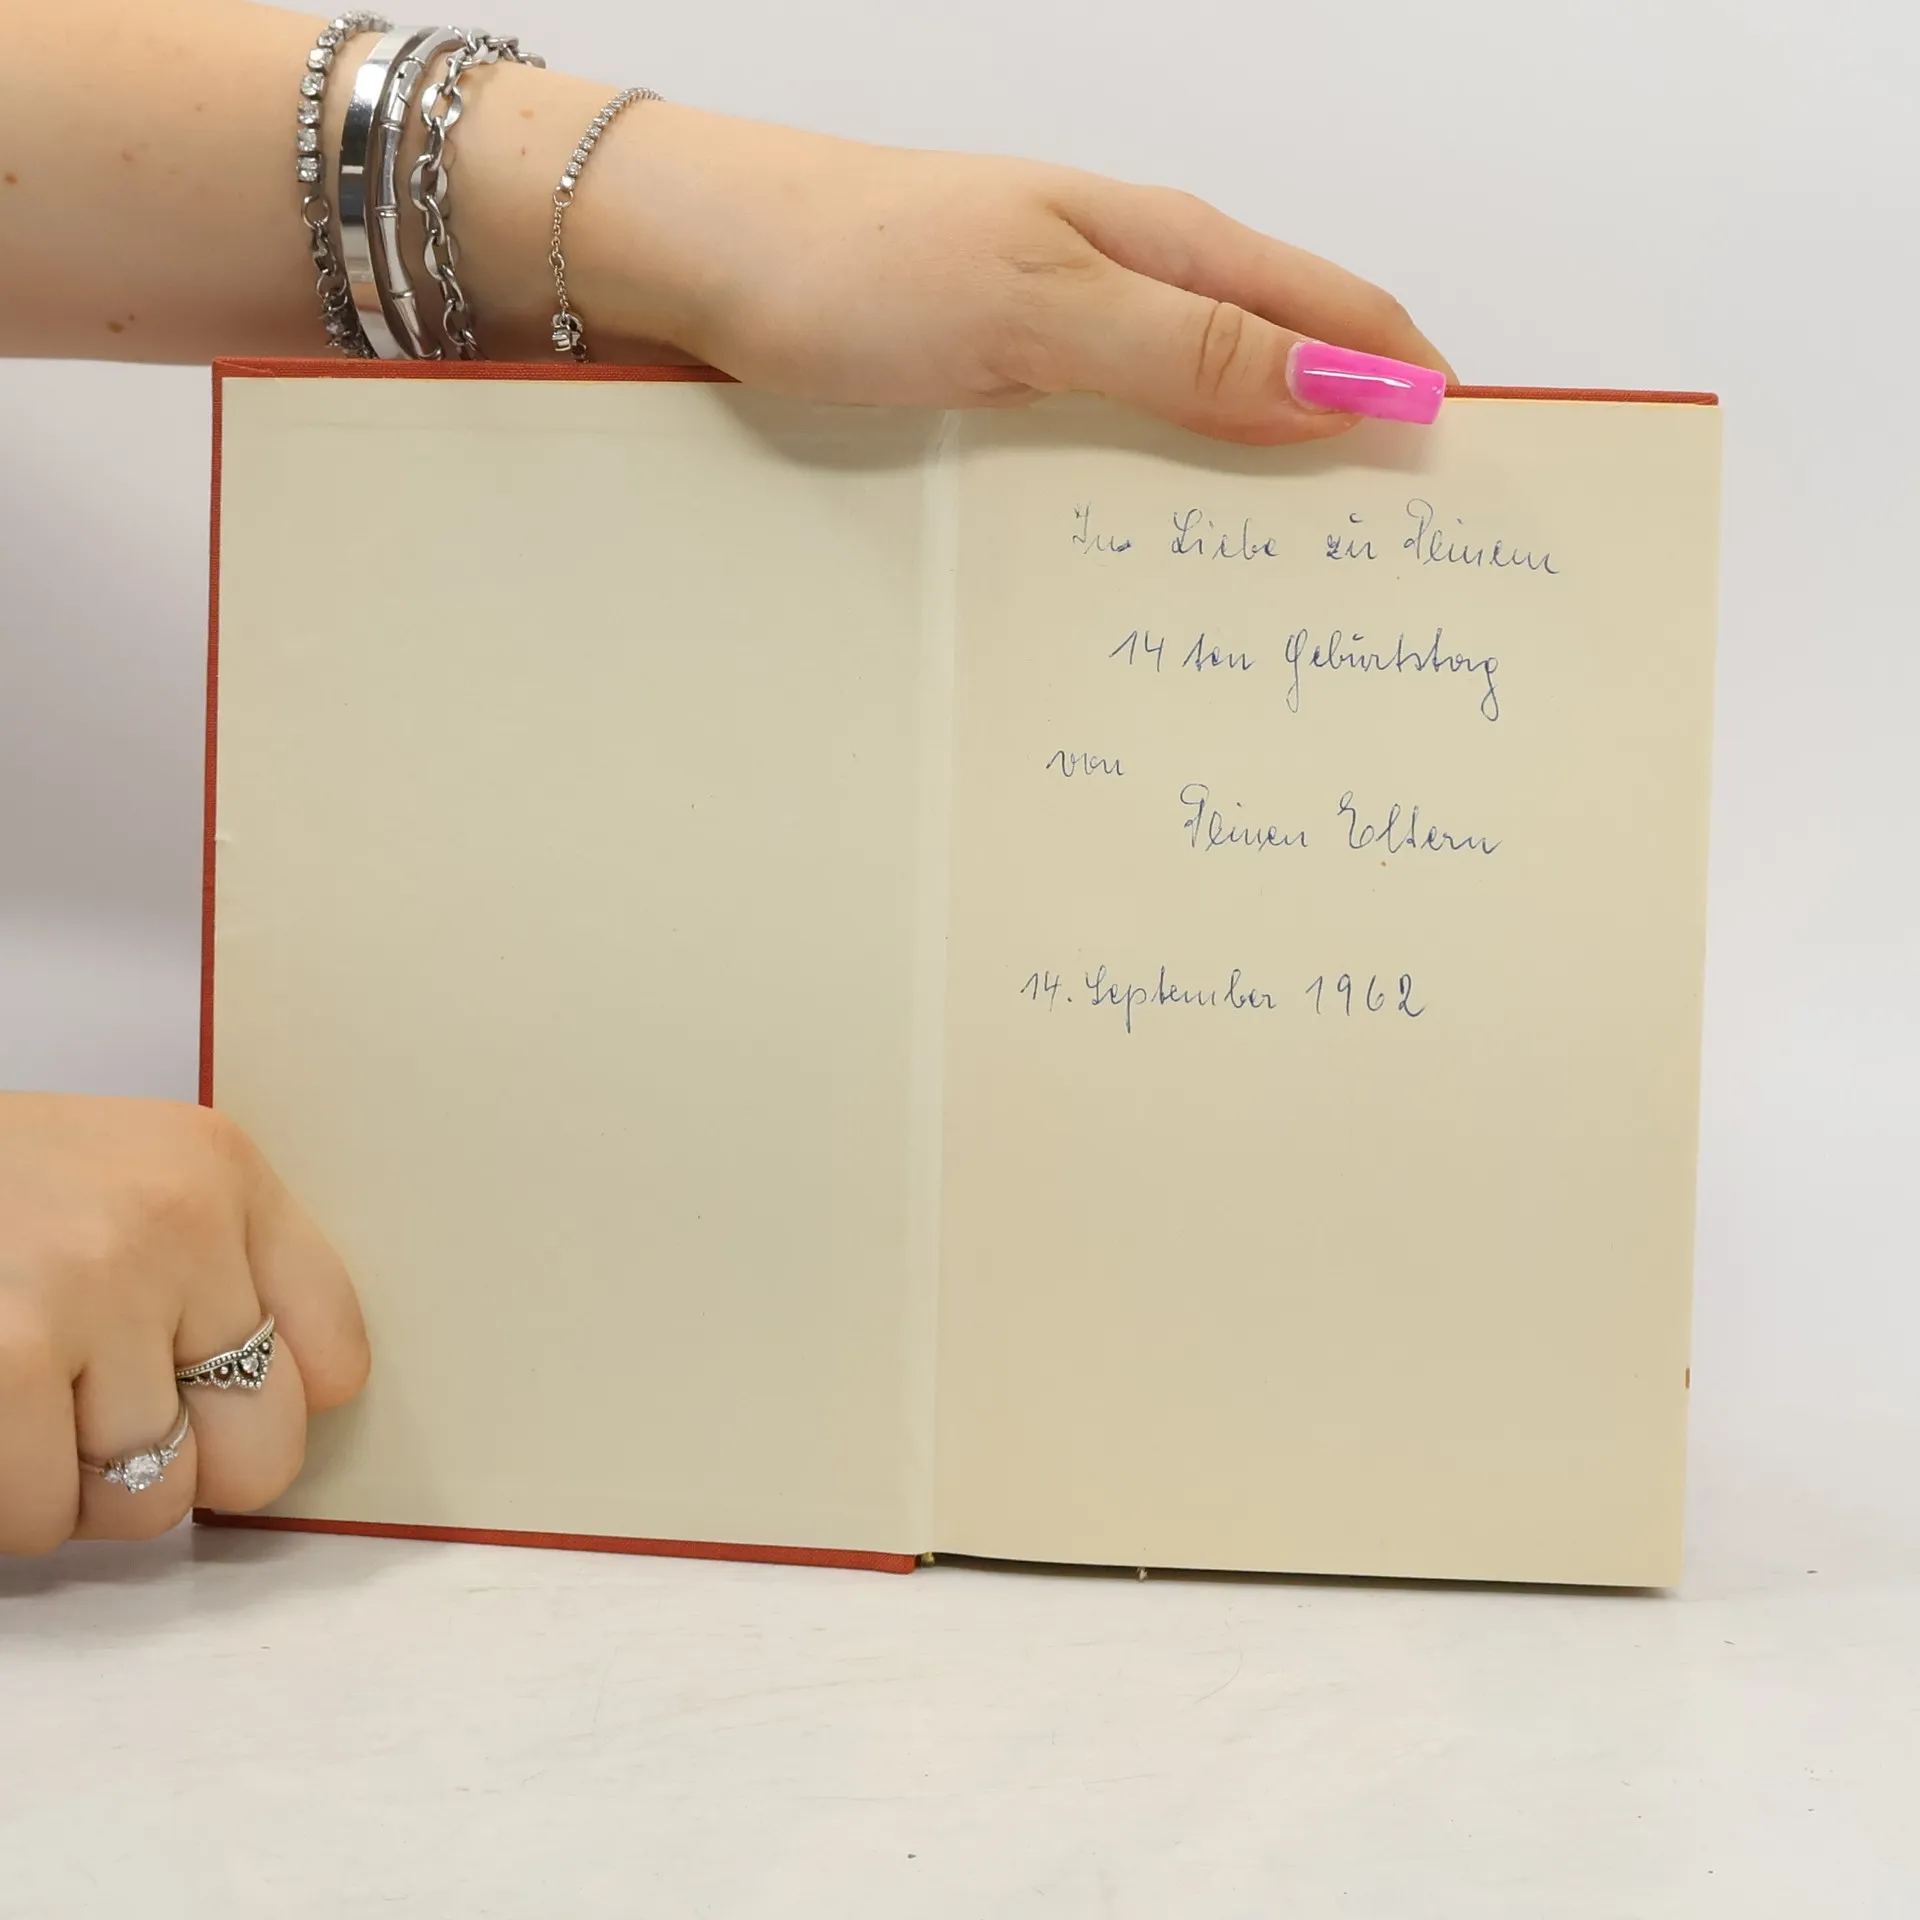 In Liebe zu Deinem
14 ten Geburtstag
von
Deinen Eltern
14. September 1962